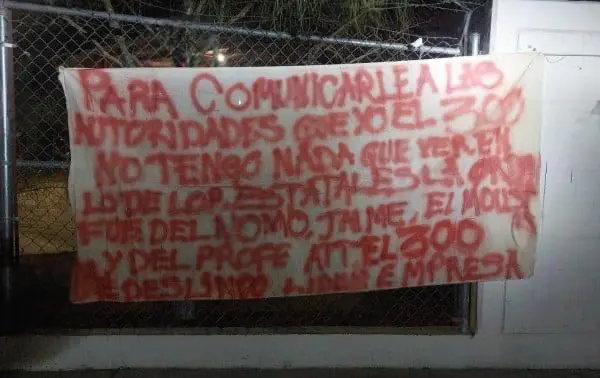 PARA COMUNICARLE A LAS
AUTORIDADES QUE YO EL 300
NO TENGO NADA QUE VER EN
LO DE LOS ESTATALES LA ORDN
FUE DEL NOMO, JAIME, EL
Y DEL PROFE ATT EL 300
ME DESLINDO EMPRESA